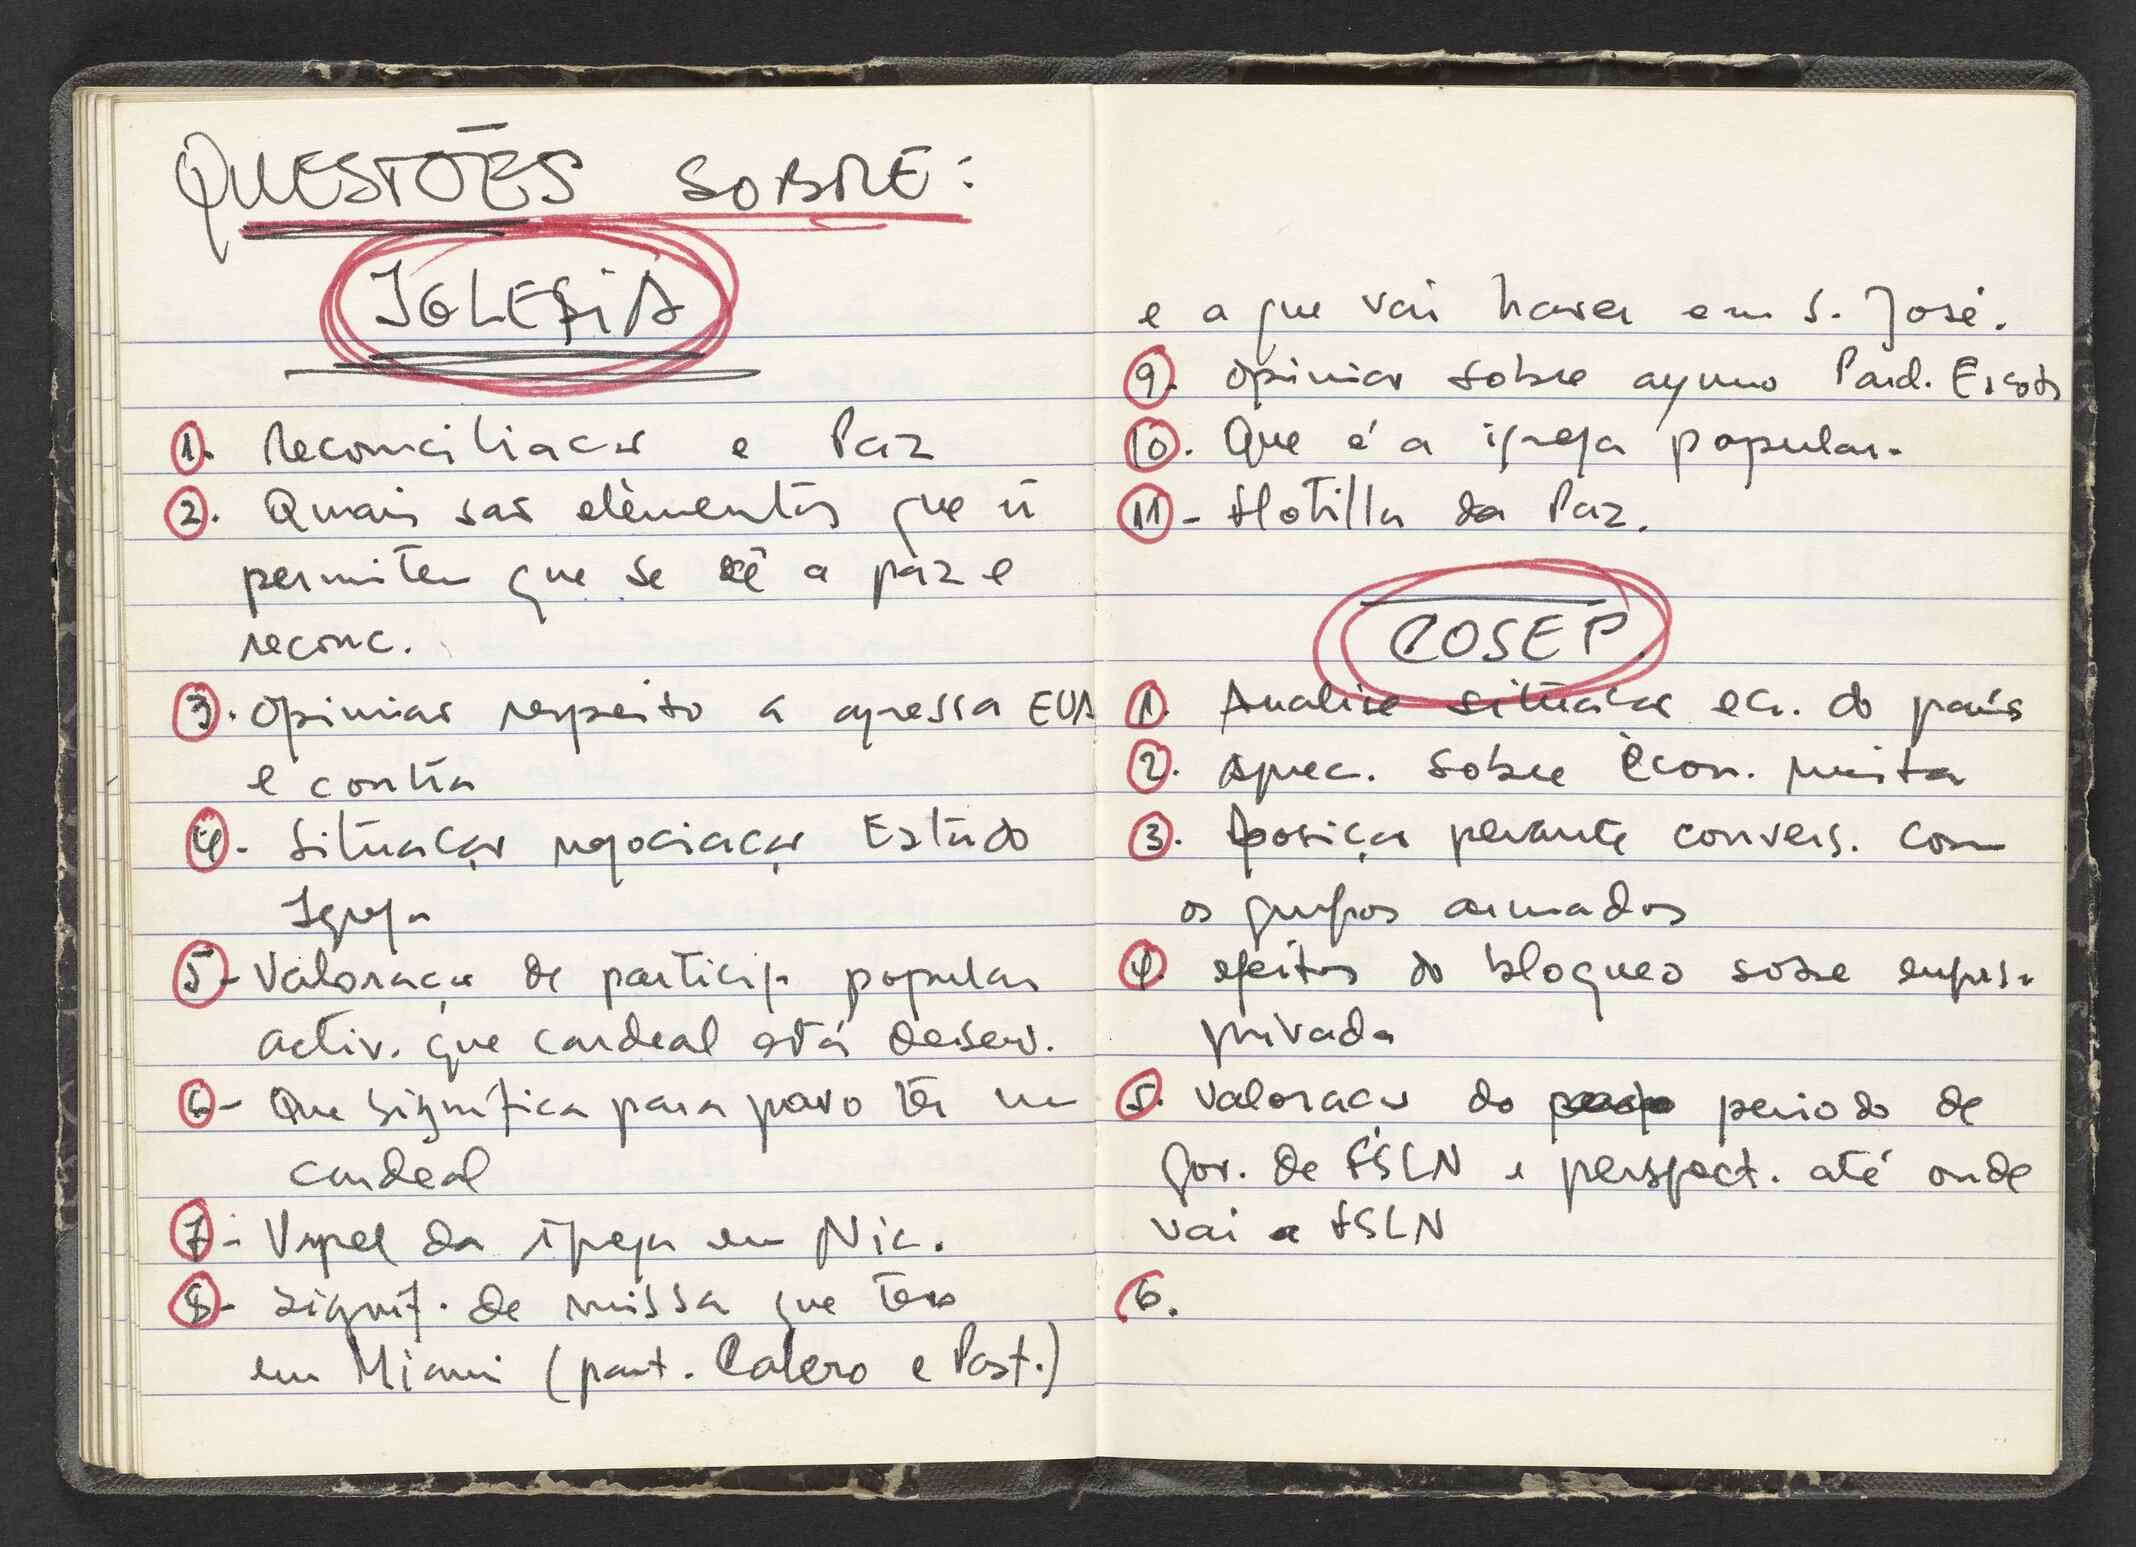 QUESTÕES SOBRE:
IGLESIA
1. Reconciliação e Paz
2. Quais são elementos que ñ
permitem que se dê a paz e
reconc.
3. Opinião respeito á agressa EUA
e contra
4. Situação negociação Estado
Igreja
5- Valoração de particip popular
activ. que cardeal está desenv.
6- Que significa para povo ter um
cardeal
7- Papel da igreja em Nic.
8- Signif. de missa que teve
em Miami (part. Calero e Past.)
e a que vai haver em S. José.
9. Opinião sobre Pard. Escoto
10. Que é a igreja popular.
11- Flotilla da Paz.
COSEP.
1. Analise situação ec. do país
2. Aprec. sobre Econ. mista
3. posição perante convers. com
os grupos armados
4. efeitos do bloqueo sobre empres.
privada
5. Valoração do periodo de
gov. de FSLN e perspect. até onde
vai a FSLN
6.